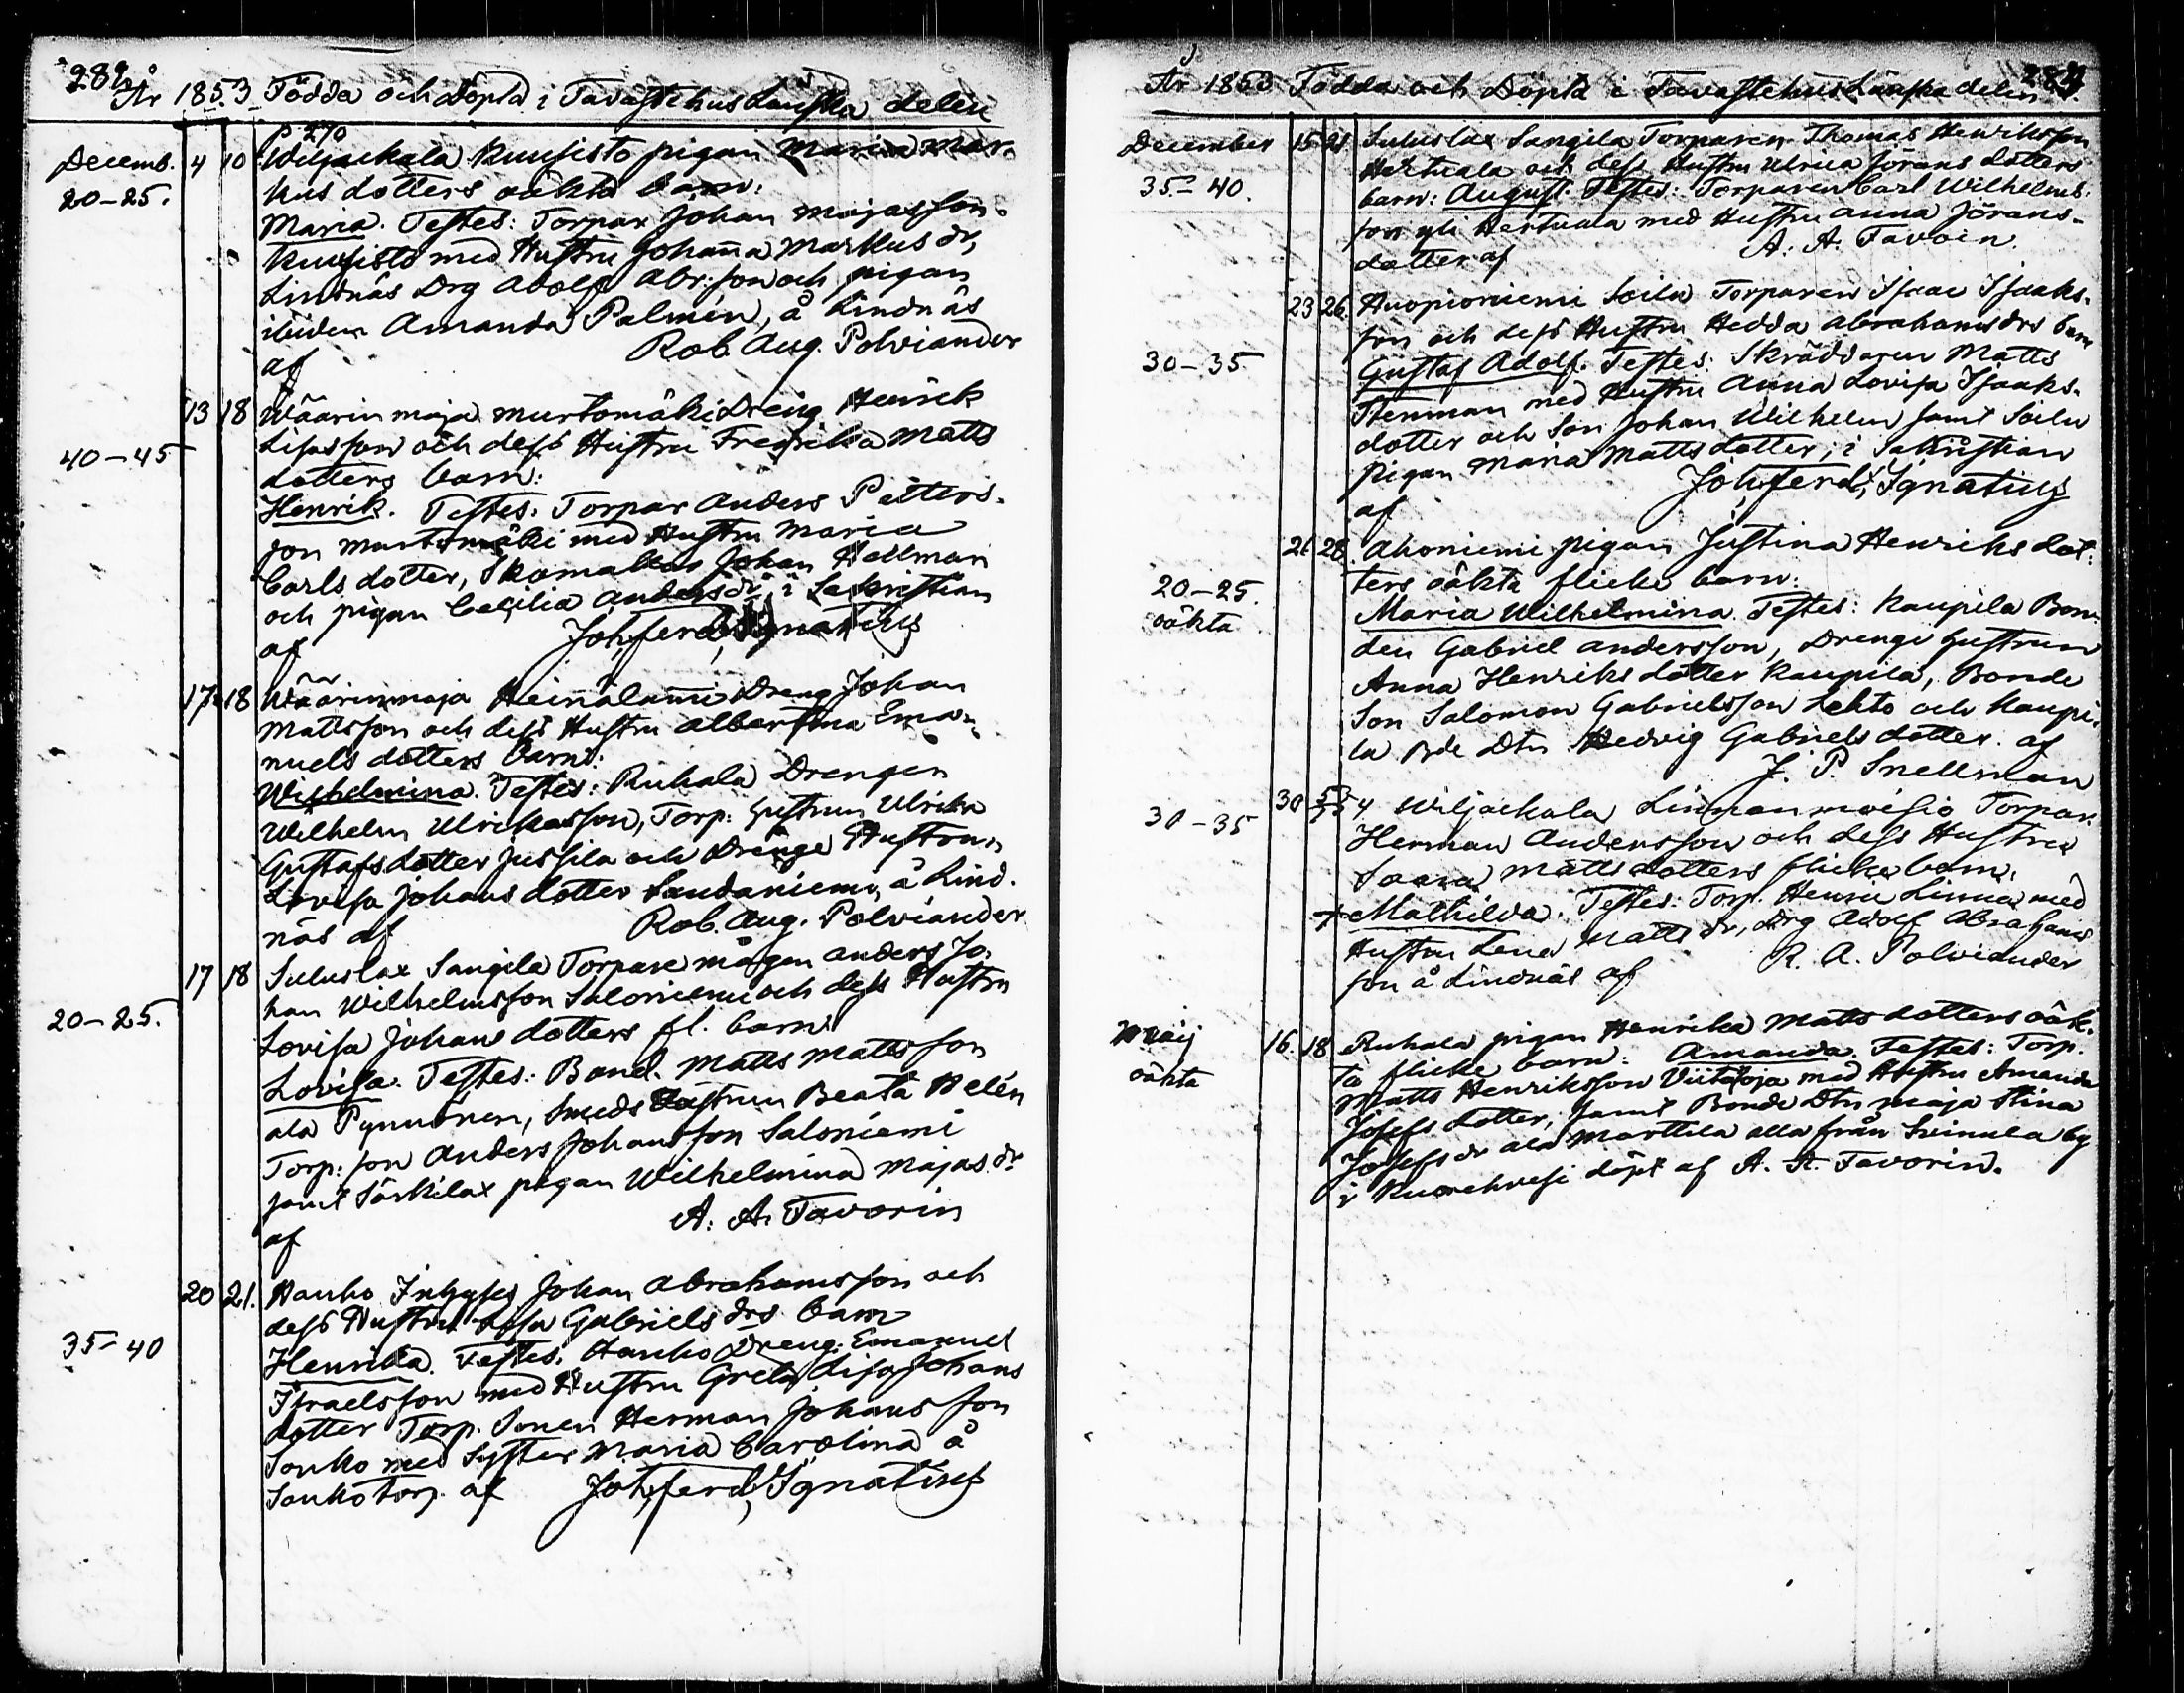 282
År 1853 Födda och Döpta i Tavastehus Länska delen
p 270
Decemb. 4 10 Wiljackala Kuusisto pigan Maria Mar-
20-25. kus dotters oäkta barn:
Maria. Testes: Torpar Johan Majasson
Kuusisto med Hustru Johanna Markus dr,
Lindnäs Drg Adolf Abr:son och pigan
ibidem Amanda Palmén, å Lindnäs
af Rob. Aug. Polviander
13 18 Wäärinmaja Murtomäki Dreng Henrik
40-45 Lisasson och dess Hustru Fredrika Matts
dotters barn:
Henrik. Testes: Torpar Anders Petters-
son Murtomäki med Hustru Maria
Carls dotter, Skomakar Johan Hallman
och pigan Cecilia Anders dr i Sakristian
af Joh. ferd. Ignatius
17 18 Wäärinmaja Heinälammi Dreng Johan
Mattsson och dess Hustru Albertina Ema-
nuels dotters barn:
Wilhelmina. Testes: Ruhala Drengen
Wilhelm Ulrikasson, Torp: hustrun Ulrika
Gustafs dotter Jussila och Drenge Hustrun
Lovisa Johans dotter Saudaniemi, å Lind-
näs af Rob. Aug. Polviander
17 18 Suluslax Sangila Torpare mågen Anders Jo-
han Wilhelmsson Saloniemi och dess Hustru
20-25. Lovisa Johans dotters fl. barn
Lovisa. Testes: Bond. Matts Mattsson
ala Pynnönen, Smeds Hustrun Beata Helén
Torp: son Anders Johansson Saloniemi
samt Särkilax pigan Wilhelmina Majas dr
af A. A. Favorin
20 21. Hanho Inhyses Johan Abrahamsson och
dess Hustru Lisa Gabriels drs barn
35-40 Henrika. Testes: Hanho Dreng Emanuel
Israelsson med Hustru Greta Lisa Johans
dotter Torp. Sonen Herman Johansson
Sonko med Syster Maria Carolina å
Sonko torp. af Joh. ferd. Ignatius
År 1853 Födda och Döpta i Tavastehus Länska delen
December 15 21 Suluslax Sangila Torparen Thomas Henriksson
Hertuala och dess Hustru Ulrica Jörans dotters
35-40. barn: August. Testes: Torparen Carl Wilhelms-
son yli Hertuala med Hustru Anna Jörans-
dotter af A. A. Favorin.
23 26. Kuopioniemi Soilu Torparen Isaac Isaaks-
son och dess Hustru Hedda Abrahams drs barn
30-35 Gustaf Adolf. Testes: Skräddaren Matts
Stenman med Hustru Anna Lovisa Isaaks-
dotter och Son Johan Wilhelm samt Soilu
Pigan Maria Matts dotter; i Sakristian
af Joh. ferd. Ignatius
21 28. Ahoniemi pigan Justina Henriks dot-
20-25. ters oäkta flicke barn:
oäkta Maria Wilhelmina. Testes: Kaupila Bon-
den Gabriel Andersson, Drenge hustrun
Anna Henriks dotter Kaupila, Bonde
Son Salomon Gabrielsson Lehto och Kaupi-
la Bde Dtn Hedvig Gabriels dotter. af
J. P. Snellman
30-35 30 4 Wiljackala Linnanmoisio Torpar.
Herman Andersson och dess Hustru
Saara Matts dotters flicke barn.
+ Mathilda. Testes: Torp. Henric Linna med
Hustru Lena Matts dr, Drg Adolf Abrahams
son å Lindnäs af R. A. Polviander
Maij 16. 18 Ruhala pigan Henrika Matts dotters oäk-
oäkta ta flicke barn: Amanda. Testes: Torp.
Matts Henriksson Viitaoja med Hustru Amanda
Josefs dotter, samt Bonde Dtn Maja Stina
Josefs dr ala Marttila alla från Svinula by
i Kuorehvesi döpt af A. A. Favorin.